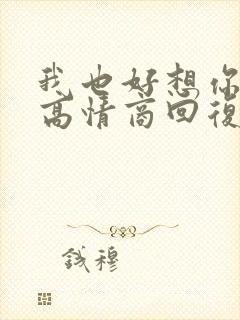 我也好想你
高情商回復
钱穆